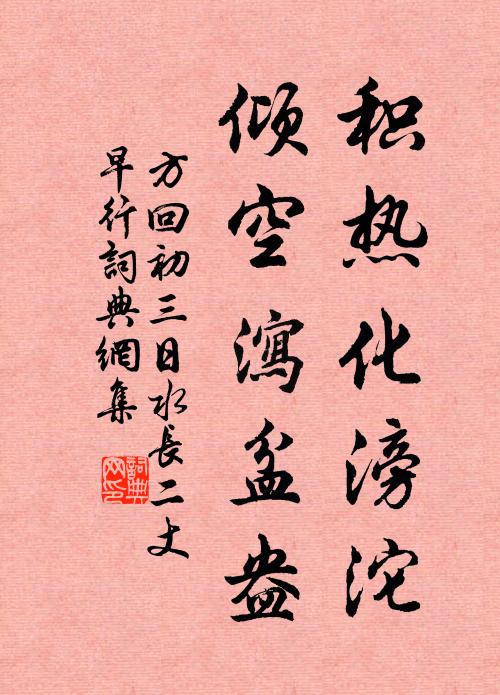 积热化滂沱
倾空瀉盆盎
方回初三日水長二丈
早行詞典網集
詞典网印